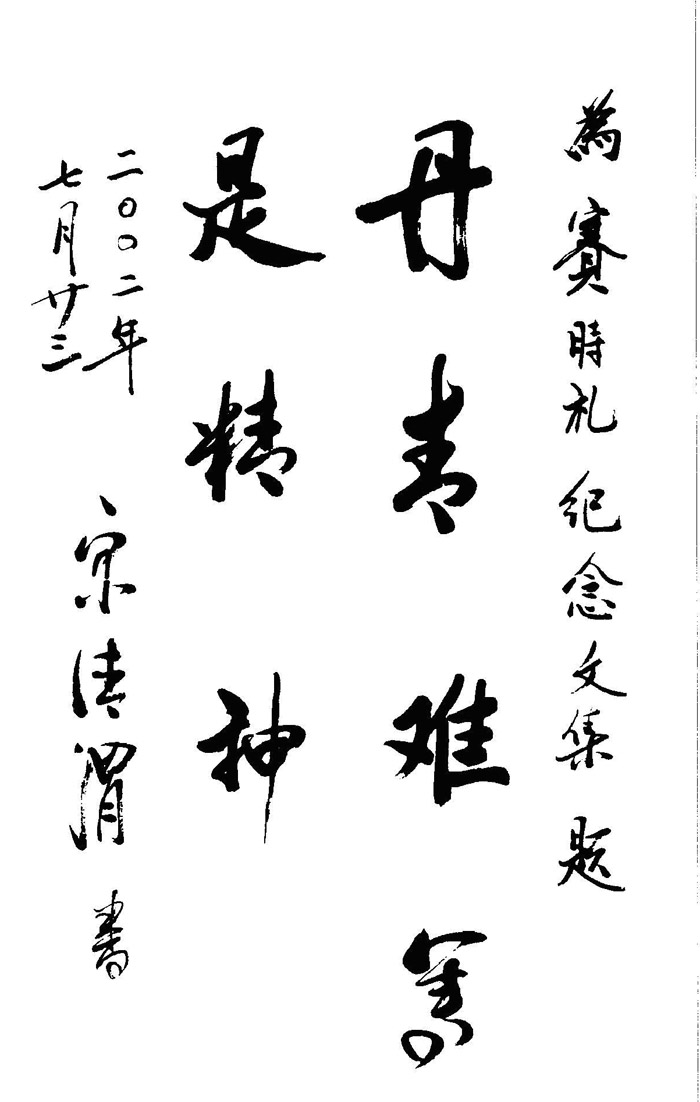 為赛時礼纪念文集题
丹青难写
是精神
二〇〇二年
七月廿三
宋清渭书